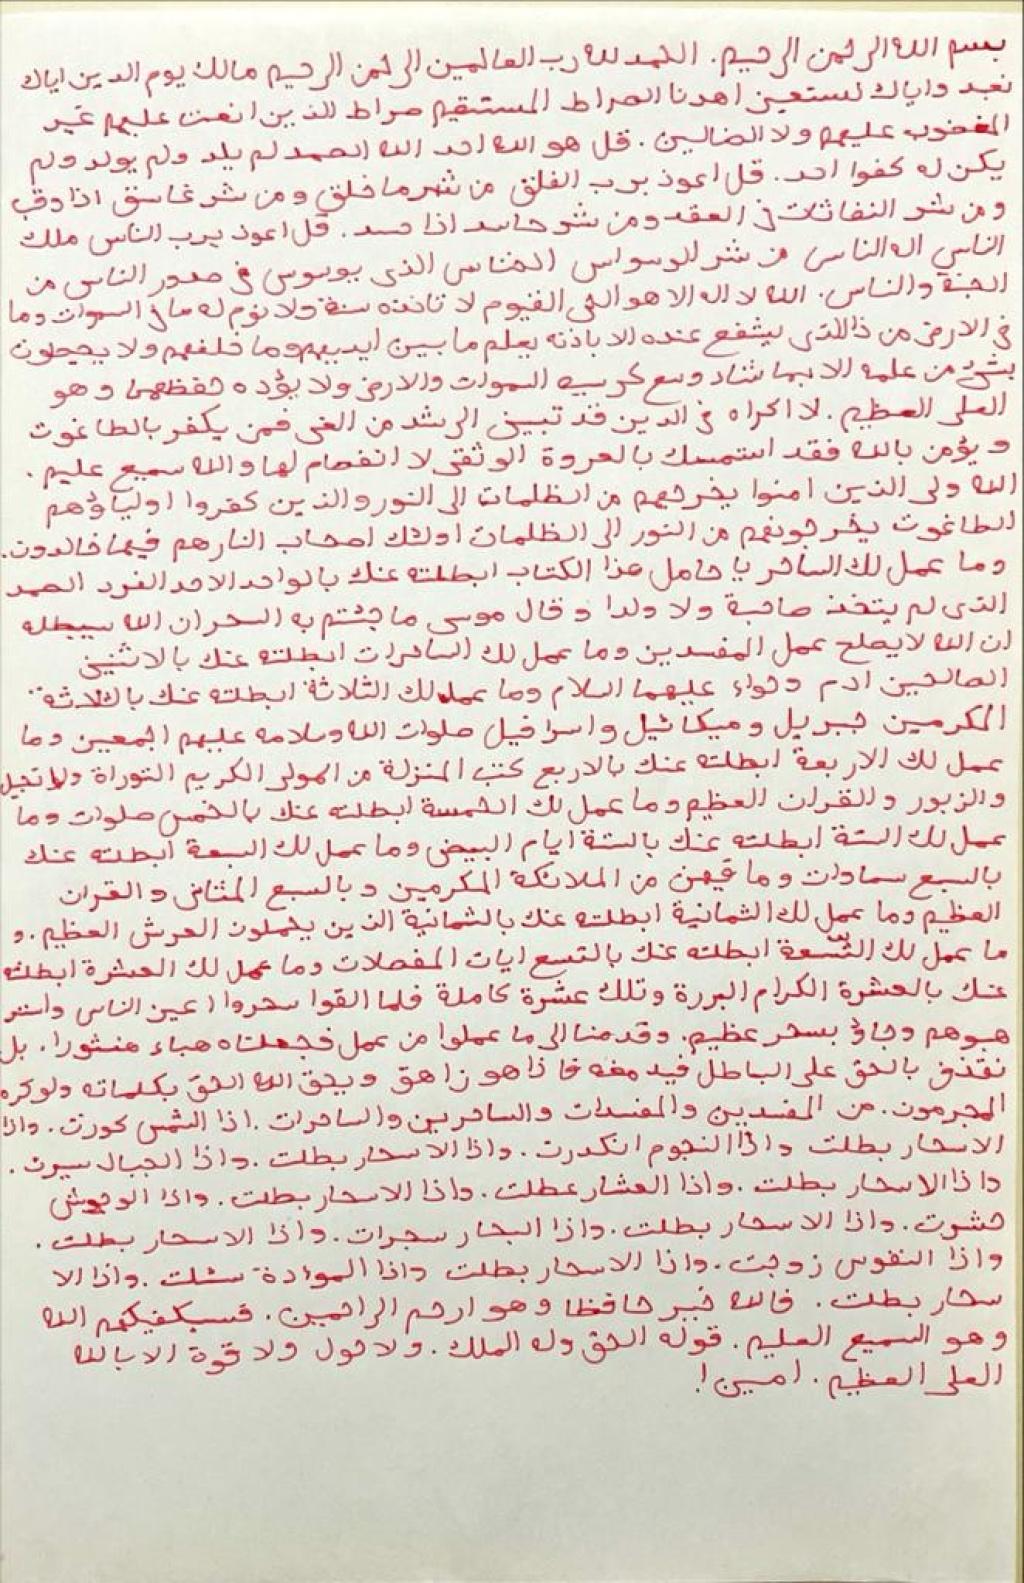 بسم الله الرحمن الرحيم. الحمد لله رب العالمين الرحمن الرحيم مالك يوم الدين اياك
نعبد واياك نستعين اهدنا الصراط المستقيم صراط الذين انعمت عليهم غير
المغضوب عليهم ولا الضالين. قل هو الله احد الله الصمد لم يلد ولم يولد ولم
يكن له كفوا احد. قل اعوذ برب الفلق من شر ما خلق ومن شر غاسق اذا وقب
ومن شر النفاثات في العقد ومن شر حاسد اذا حسد. قل اعوذ برب الناس ملك
الناس اله الناس من شر الوسواس الخناس الذي يوسوس في صدور الناس من
الجنة والناس. الله لا اله الا هو الحي القيوم لا تاخذه سنة ولا نوم له ما في السموات وما
في الارض من ذا الذي يشفع عنده الا باذنه يعلم ما بين ايديهم وما خلفهم ولا يحيطون
بشيء من علمه الا بما شاء وسع كرسيه السموات والارض ولا يؤده حفظهما وهو
العلي العظيم. لا اكراه في الدين قد تبين الرشد من الغي فمن يكفر بالطاغوت
ويؤمن بالله فقد استمسك بالعروة الوثقى لا انفصام لها والله سميع عليم.
الله ولي الذين امنوا يخرجهم من الظلمات الى النور والذين كفروا اولياؤهم
الطاغوت يخرجونهم من النور الى الظلمات اولئك اصحاب النار هم فيها خالدون.
وما عمل لك الساحر يا حامل هذا الكتاب ابطلته عنك بالواحد الاحد الفرد الصمد
الذي لم يتخذ صاحبة ولا ولدا وقال موسى ما جئتم به السحر ان الله سيبطله
ان الله لا يصلح عمل المفسدين وما عمل لك الساحرات ابطلته عنك بالاثنين
الصالحين ادم وحواء عليهما السلام وما عمل لك الثلاثة ابطلته عنك بالثلاثة
المكرمين جبريل وميكائيل واسرافيل صلوات الله وسلامه عليهم اجمعين وما
عمل لك الاربعة ابطلته عنك بالاربع كتب المنزلة من المولى الكريم التوراة والانجيل
والزبور والقران العظيم وما عمل لك الخمسة ابطلته عنك بالخمس صلوات وما
عمل لك الستة ابطلته عنك بالستة ايام البيض وما عمل لك السبعة ابطلته عنك
بالسبع سماوات وما فيهن من الملائكة المكرمين وبالسبع المثاني والقران
العظيم وما عمل لك الثمانية ابطلته عنك بالثمانية الذين يحملون العرش العظيم. و
ما عمل لك التسعة ابطلته عنك بالتسع ايات المفصلات وما عمل لك العشرة ابطلته
عنك بالعشرة الكرام البررة وتلك عشرة كاملة فلما القوا سحروا اعين الناس واستر
هبوهم وجاؤ بسحر عظيم. وقدمنا الى ما عملوا من عمل فجعلناه هباء منثورا. بل
نقذف بالحق على الباطل فيدمغه فاذا هو زاهق ويحق الله الحق بكلماته ولو كره
المجرمون. من المفسدين والمفسدات والساحرين والساحرات. اذا الشمس كورت. واذا
الاسحار بطلت واذا النجوم انكدرت. واذا الاسحار بطلت. واذا الجبال سيرت.
واذا الاسحار بطلت. واذا العشار عطلت. واذا الاسحار بطلت. واذا الوحوش
حشرت. واذا الاسحار بطلت. واذا البحار سجرات. واذا الاسحار بطلت.
واذا النفوس زوجت. واذا الاسحار بطلت واذا الموادة سئلت. واذا الا
سحار بطلت. فالله خير حافظا وهو ارحم الراحمين. فسيكفيكهم الله
وهو السميع العليم. قوله الحق وله الملك. ولا حول ولا قوة الا بالله
العلي العظيم. امين!